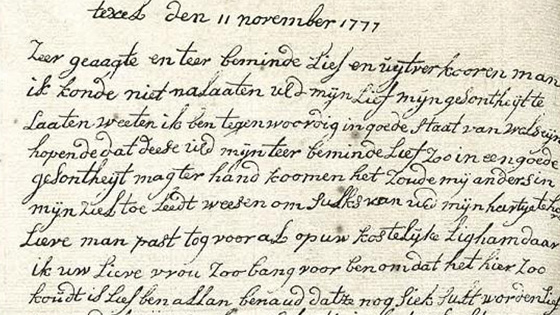 texel den 11 november 1777
Zeer geaagte en teer beminde Lief en uijtverkooren man
ik konde niet nalaaten uld mijn Lief mijn gesontheijt te
Laaten weeten ik ben tegenwoordig in goede staat van welseijn
hopende dat deese uld mijn teer beminde Lief zoo in een goede
gesontheijt mag ter hand koomen het zoude mij anders in
mijn ziel toe Leedt weesen om sulks van uld mijn hartje te
Lieve man past tog voor al op uw kostelijke Lighaam daar
ik uw Lieve vrou zoo bang voor ben omdat het hier zoo
koudt is Lief ben al lan benaud dat ze nog siek sult worden